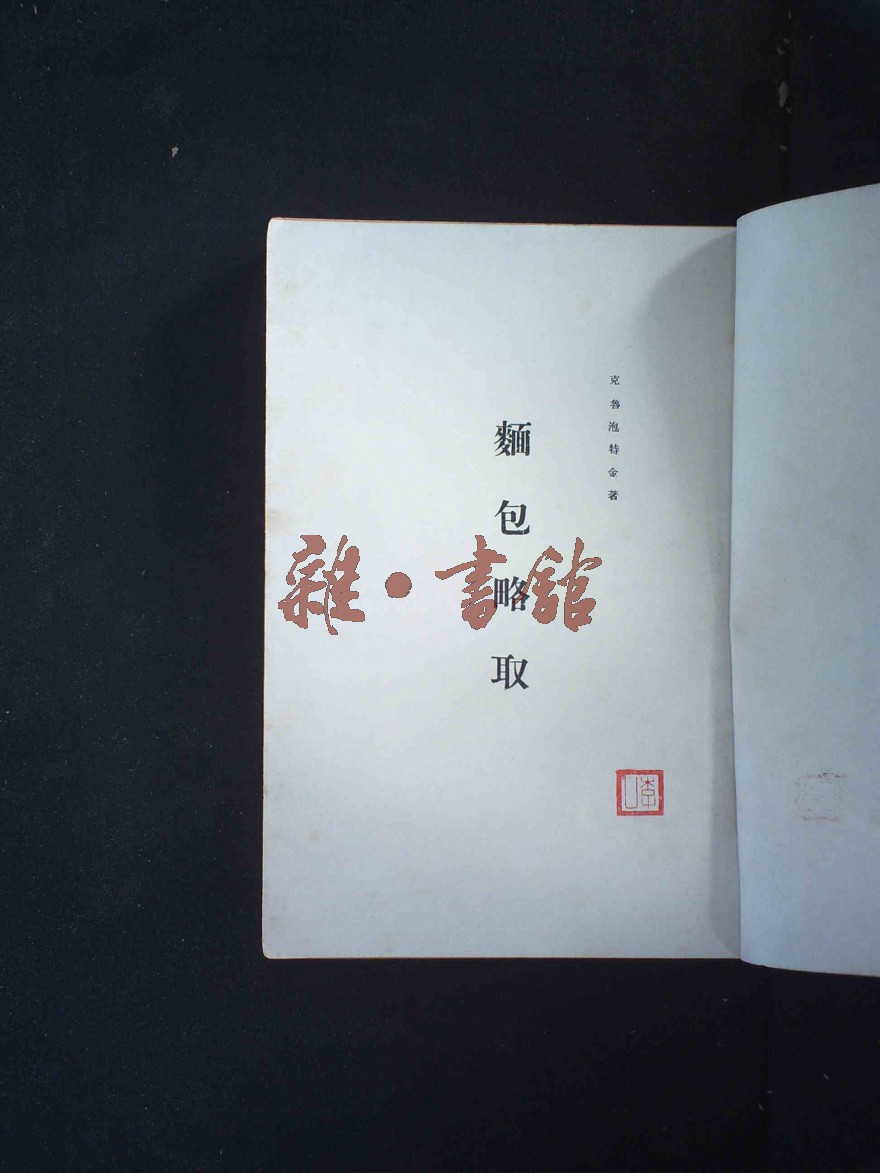 克魯泡特金著
麵包略取
雜·書館